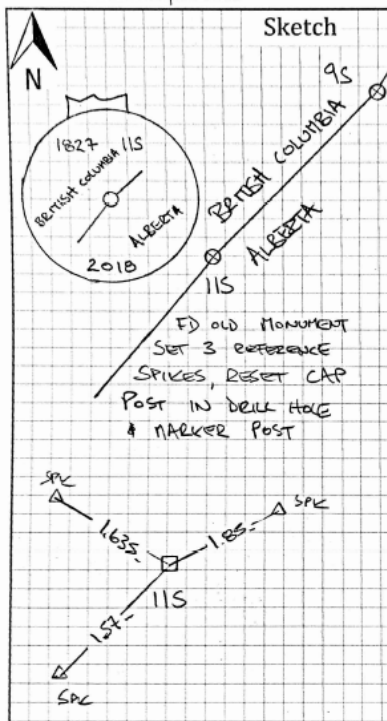 Sketch
N
1827 11S
BRITISH COLUMBIA
ALBERTA
2018
9S
BRITISH COLUMBIA
ALBERTA
11S
FD OLD MONUMENT
SET 3 REFERENCE
SPIKES, RESET CAP
POST IN DRILL HOLE
& MARKER POST
SPK
SPK
1.635
1.85
11S
1.57
SPK